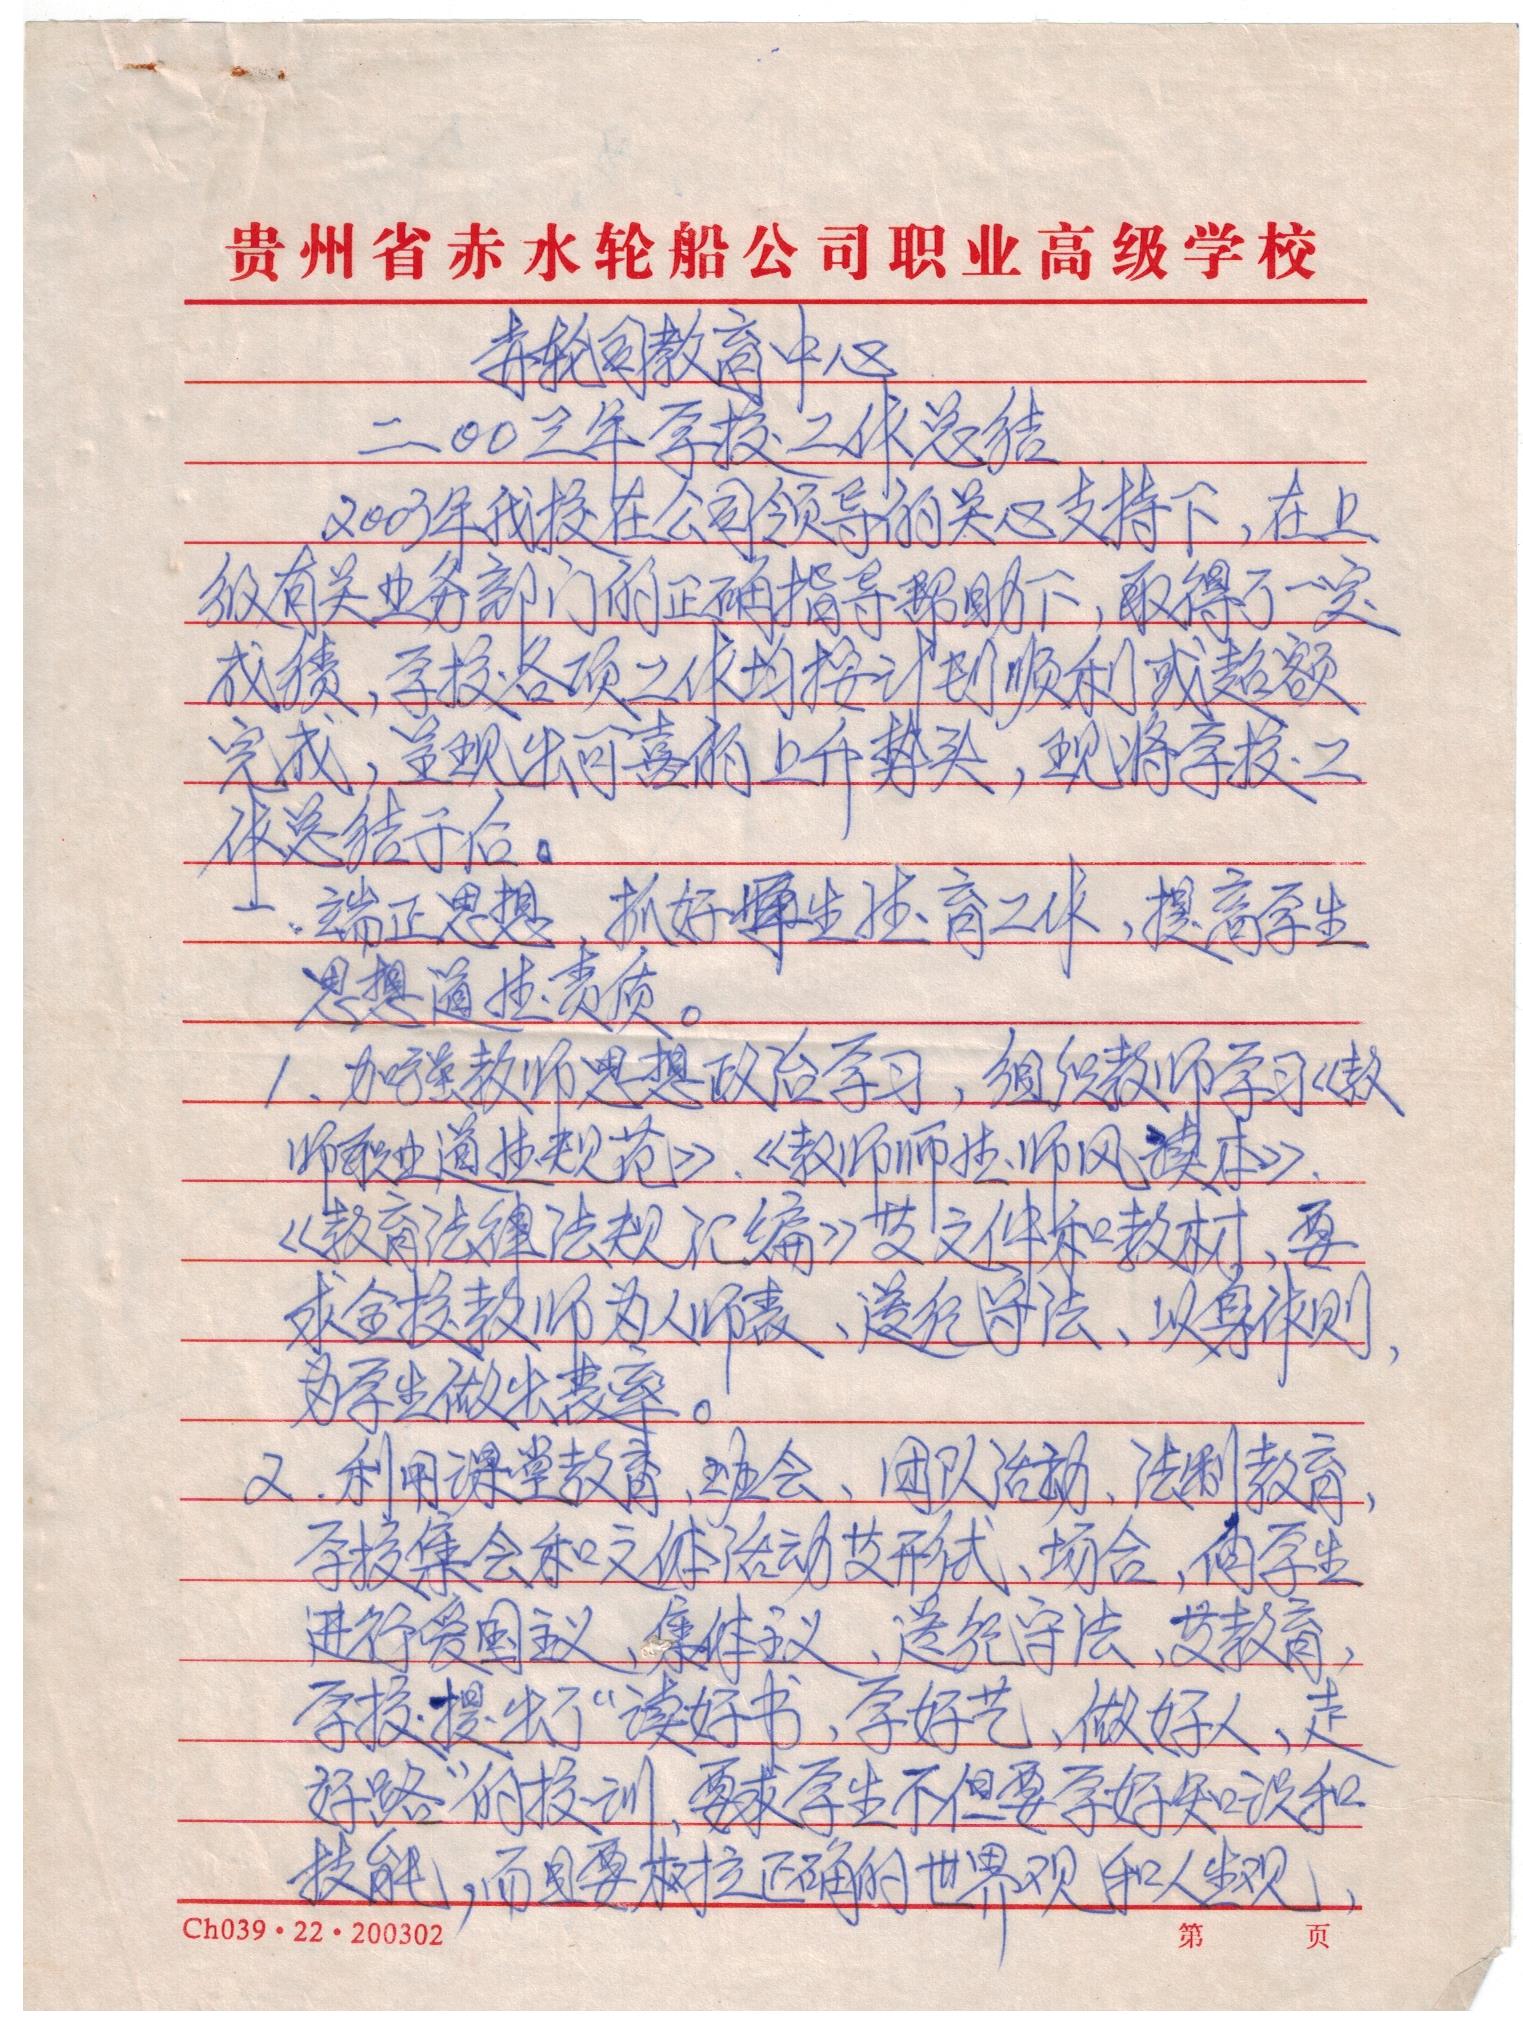 贵州省赤水轮船公司职业高级学校
赤轮司教育中心
二〇〇三年学校工作总结
2003年我校在公司领导的关心支持下，在上
级有关业务部门的正确指导帮助下，取得了一定
成绩，学校各项工作均按计划顺利或超额
完成，呈现出可喜的上升势头，现将学校工
作总结于后。
一.端正思想、抓好学生德育工作，提高学生
思想道德素质。
1、加强教师思想政治学习，组织教师学习《教
师职业道德规范》、《教师师德师风读本》、
《教育法律法规汇编》等文件和教材，要
求全校教师为人师表、遵纪守法、以身作则，
为学生做出表率。
2.利用课堂教育、班会、团队活动、法制教育，
学校集会和文体活动等形式、场合，向学生
进行爱国主义、集体主义、遵纪守法、等教育，
学校提出了“读好书、学好艺、做好人、走
好路”的校训，要求学生不但要学好知识和
技能，而且要树立正确的世界观和人生观，
Ch039·22·200302
第 页